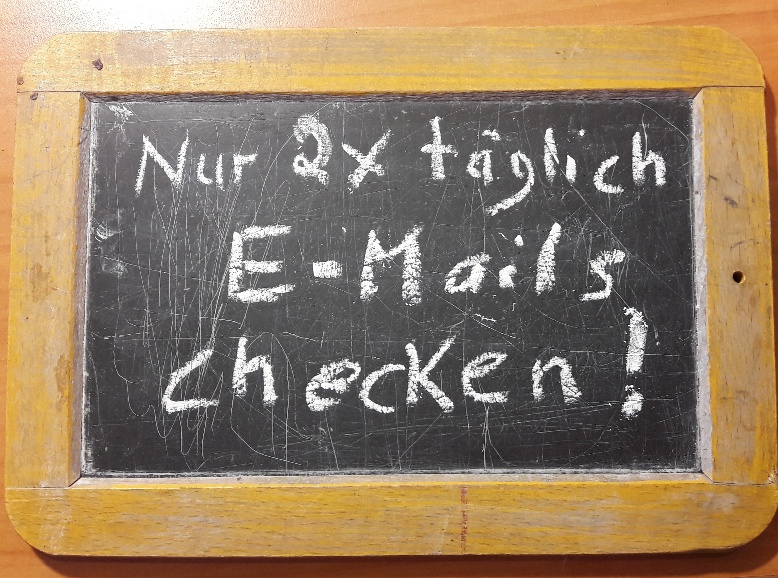 Nur 2x täglich
E-Mails
checken!